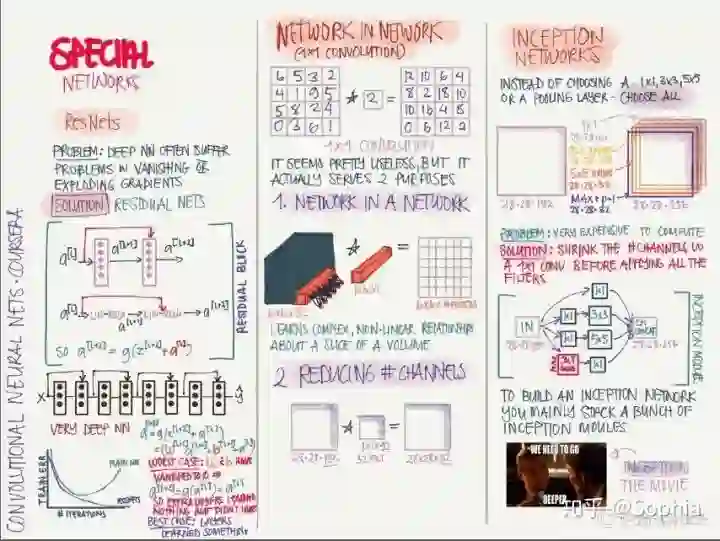 CONVOLUTIONAL NEURAL NETS • COURSERA
SPECIAL
NETWORKS
ResNets
PROBLEM: DEEP NN OFTEN SUFFER
PROBLEMS IN VANISHING OR
EXPLODING GRADIENTS
SOLUTION RESIDUAL NETS
a[l] a[l+1] a[l+2]
a[l]
a[l+1]
a[l+2]
SO a[l+2] = g(z[l+2] + a[l])
RESIDUAL BLOCK
X ŷ
VERY DEEP NN
TRAIN ERR
PLAIN NN
RESNETS
# ITERATIONS
WORST CASE:
SO EXTRA LAYERS LEARNED
NOTHING BUT DIDN'T HURT
BEST CASE: LAYERS
LEARNED SOMETHING
NETWORK IN NETWORK
(1x1 CONVOLUTION)
6 5 3 2
4 1 9 5
5 8 2 4
0 3 6 1
* 2 =
12 10 6 4
8 2 18 10
10 16 4 8
0 6 12 2
1x1 CONVOLUTION
IT SEEMS PRETTY USELESS, BUT IT
ACTUALLY SERVES 2 PURPOSES
1. NETWORK IN A NETWORK
* =
LEARNS COMPLEX, NON-LINEAR RELATIONSHIPS
ABOUT A SLICE OF A VOLUME
2 REDUCING # CHANNELS
* =
28•28•192
INCEPTION
NETWORKS
INSTEAD OF CHOOSING A 1x1, 3x3, 5x5
OR A POOLING LAYER - CHOOSE ALL
28•28•192
28•28•256
PROBLEM: VERY EXPENSIVE TO COMPUTE
SOLUTION: SHRINK THE # CHANNELS W
A 1x1 CONV BEFORE APPLYING ALL THE
FILTERS
IN
1x1
1x1 3x3
1x1 5x5
1x1
INCEPTION MODULE
TO BUILD AN INCEPTION NETWORK
YOU MAINLY STACK A BUNCH OF
INCEPTION MODULES
WE NEED TO GO
DEEPER
INCEPTION
THE MOVIE
知乎 @Sophia